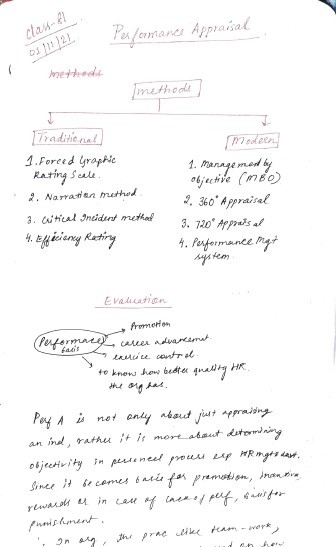 class-81
02/11/21
Performance Appraisal
methods
methods
Traditional
Modern
1. Forced Graphic
Rating Scale.
2. Narration method.
3. Critical Incident method
4. Efficiency Rating
1. Managemed by
objective (MBO)
2. 360° Appraisal
3. 720° Appraisal
4. Performance Mgt
system.
Evaluation
Performance
basis
Promotion
career advancement.
exercise control.
to know how better quality HR
the org has.
Perf A is not only about just appraising
an ind, rather it is more about determining
objectivity in personnel process esp HR mgt
Since it becomes basis for promotion, incentive,
rewards or in case of lack of perf, basis for
punishment.
In org, the prac like team-work,
how